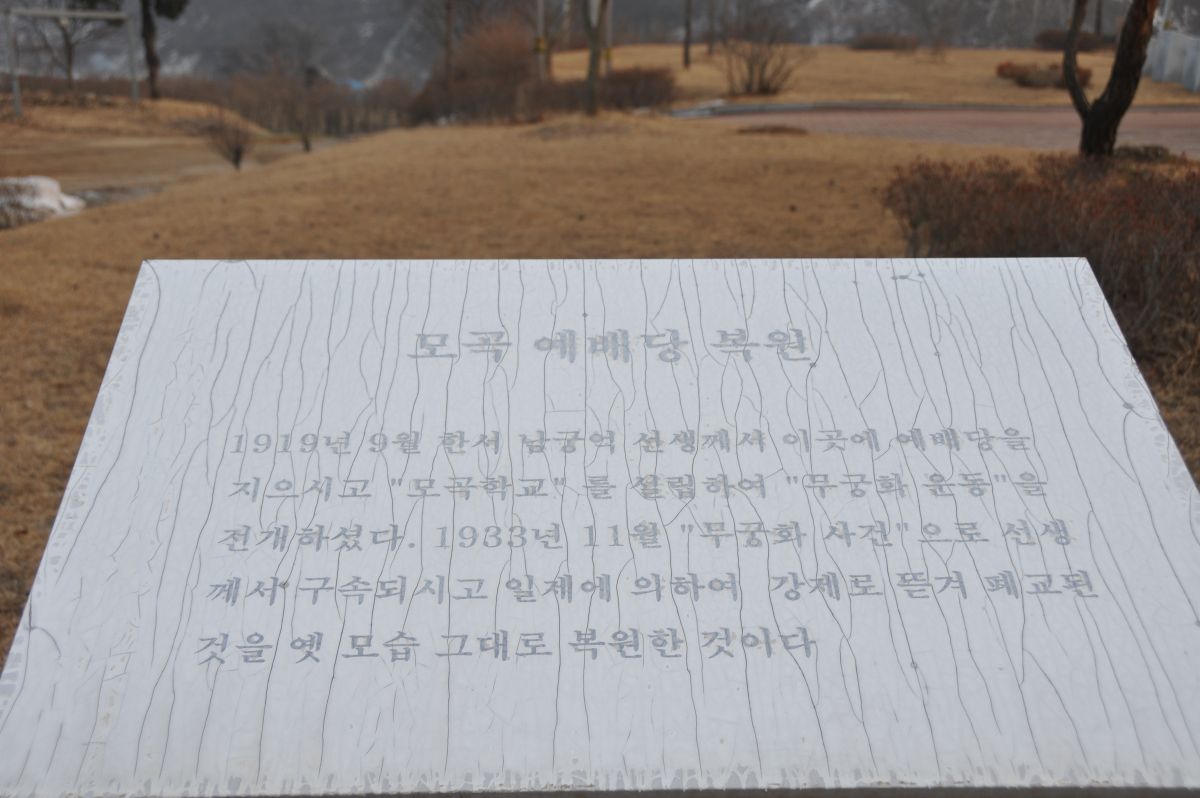 모곡 예배당 복원
1919년 9월 한서 남궁억 선생께서 이곳에 예배당을
지으시고 "모곡학교" 를 설립하여 "무궁화 운동"을
전개하셨다. 1933년 11월 "무궁화 사건"으로 선생
께서 구속되시고 일제에 의하여 강제로 뜯겨 폐교된
것을 옛 모습 그대로 복원한 것아다